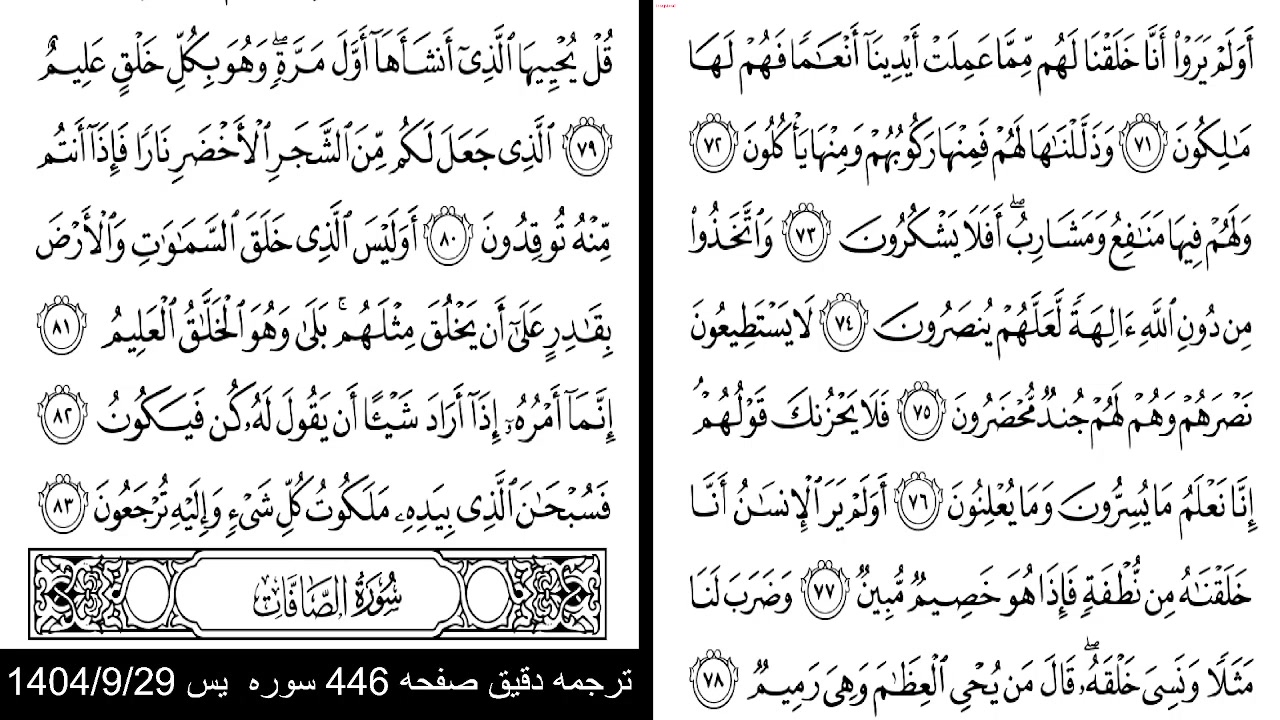 أَوَلَمْ يَرَوْا۟ أَنَّا خَلَقْنَا لَهُم مِّمَّا عَمِلَتْ أَيْدِينَآ أَنْعَـٰمًا فَهُمْ لَهَا
مَـٰلِكُونَ ٧١ وَذَلَّلْنَـٰهَا لَهُمْ فَمِنْهَا رَكُوبُهُمْ وَمِنْهَا يَأْكُلُونَ ٧٢
وَلَهُمْ فِيهَا مَنَـٰفِعُ وَمَشَارِبُ ۖ أَفَلَا يَشْكُرُونَ ٧٣ وَٱتَّخَذُوا۟
مِن دُونِ ٱللَّهِ ءَالِهَةً لَّعَلَّهُمْ يُنصَرُونَ ٧٤ لَا يَسْتَطِيعُونَ
نَصْرَهُمْ وَهُمْ لَهُمْ جُندٌ مُّحْضَرُونَ ٧٥ فَلَا يَحْزُنكَ قَوْلُهُمْ ۘ
إِنَّا نَعْلَمُ مَا يُسِرُّونَ وَمَا يُعْلِنُونَ ٧٦ أَوَلَمْ يَرَ ٱلْإِنسَـٰنُ أَنَّا
خَلَقْنَـٰهُ مِن نُّطْفَةٍ فَإِذَا هُوَ خَصِيمٌ مُّبِينٌ ٧٧ وَضَرَبَ لَنَا
مَثَلًا وَنَسِىَ خَلْقَهُۥ ۖ قَالَ مَن يُحْىِ ٱلْعِظَـٰمَ وَهِىَ رَمِيمٌ ٧٨
قُلْ يُحْيِيهَا ٱلَّذِىٓ أَنشَأَهَآ أَوَّلَ مَرَّةٍ ۖ وَهُوَ بِكُلِّ خَلْقٍ عَلِيمٌ
٧٩ ٱلَّذِى جَعَلَ لَكُم مِّنَ ٱلشَّجَرِ ٱلْأَخْضَرِ نَارًا فَإِذَآ أَنتُم
مِّنْهُ تُوقِدُونَ ٨٠ أَوَلَيْسَ ٱلَّذِى خَلَقَ ٱلسَّمَـٰوَٰتِ وَٱلْأَرْضَ
بِقَـٰدِرٍ عَلَىٰٓ أَن يَخْلُقَ مِثْلَهُم ۚ بَلَىٰ وَهُوَ ٱلْخَلَّـٰقُ ٱلْعَلِيمُ ٨١
إِنَّمَآ أَمْرُهُۥٓ إِذَآ أَرَادَ شَيْـًٔا أَن يَقُولَ لَهُۥ كُن فَيَكُونُ ٨٢
فَسُبْحَـٰنَ ٱلَّذِى بِيَدِهِۦ مَلَكُوتُ كُلِّ شَىْءٍ وَإِلَيْهِ تُرْجَعُونَ ٨٣
سُورَةُ الصَّافَّاتِ
ترجمه دقیق صفحه 446 سوره یس 1404/9/29